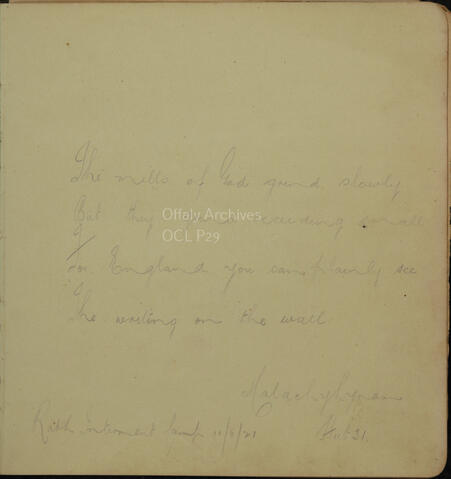 The mills of God grind slowly
But they grind exceeding small
For England you can plainly see
The writing on the wall
Malachy
Rath Internment Camp 10/6/21 Hut 31.
Offaly Archives
OCL P29